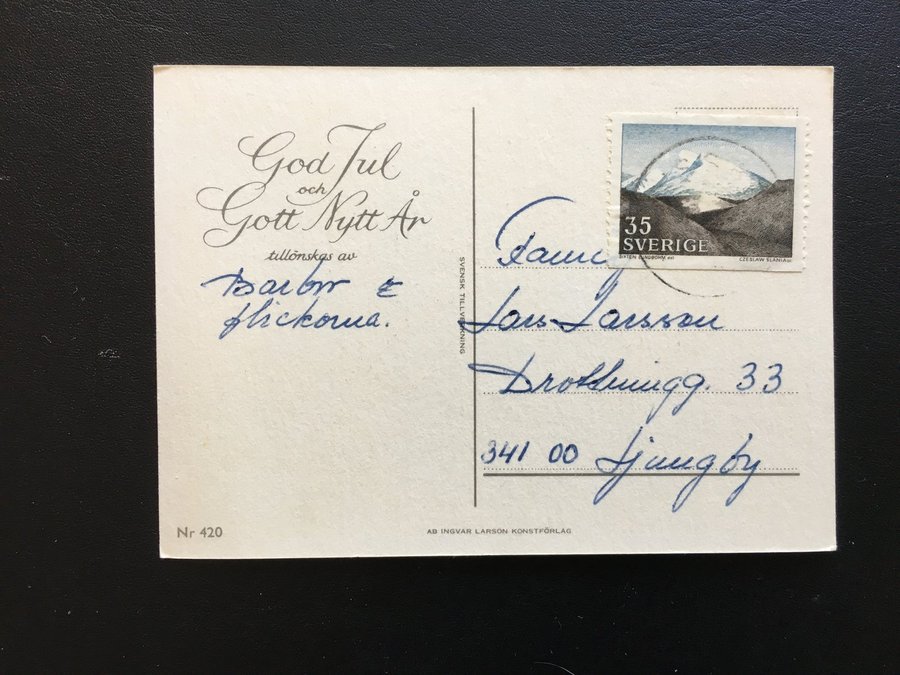 God Jul
och
Gott Nytt År
tillönskas av
flickorna.
SVENSK TILLVERKNING
35
SVERIGE
CZESLAW SLANIA sc.
Lars Larsson
Drottningg. 33
341 00 Ljungby
Nr 420
AB INGVAR LARSON KONSTFÖRLAG